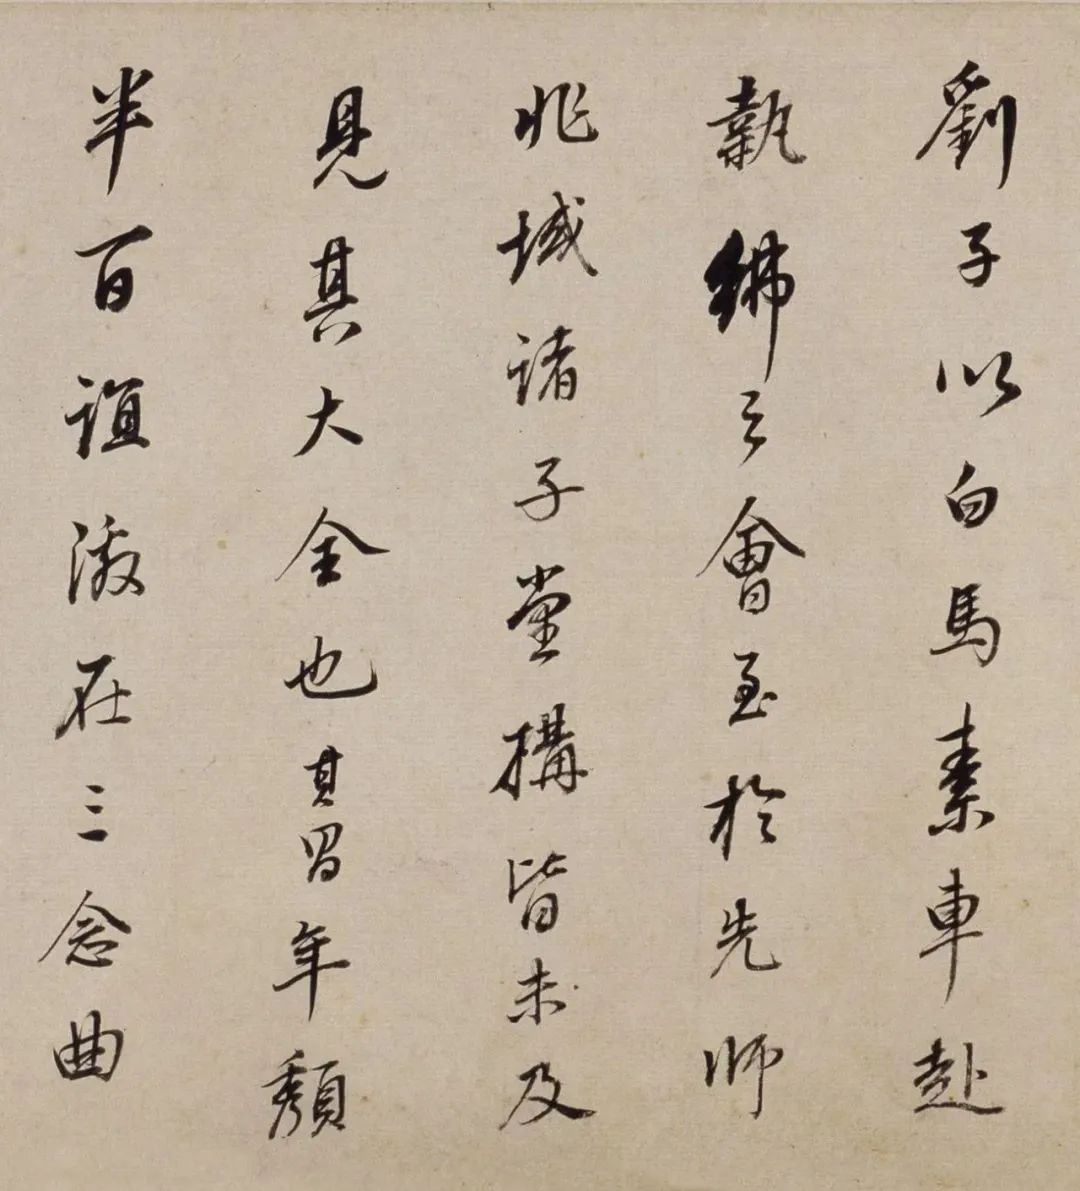 劉子以白馬素車赴
執紼之會至於先師
兆域諸子堂構皆未及
見其大全也其昌年頹
半百誼激在三念曲